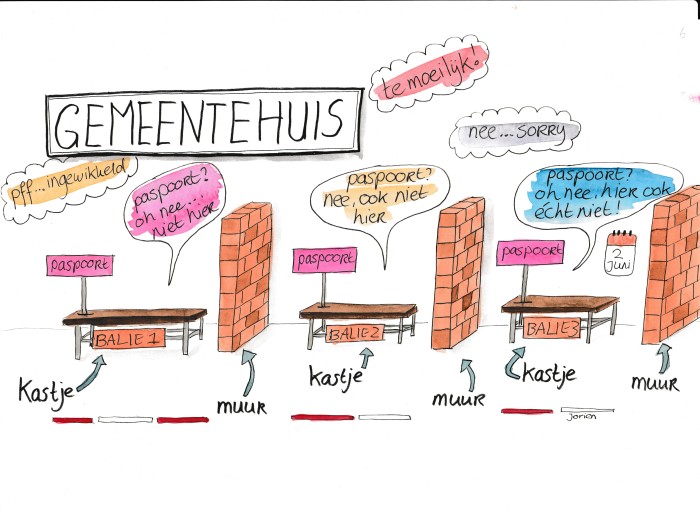 te moeilijk!
GEMEENTEHUIS
nee...SORRY
pff...ingewikkeld
paspoort?
oh nee....
niet hier
paspoort?
nee, ook niet
hier
paspoort?
oh nee, hier ook
écht niet!
paspoort
paspoort
paspoort
2
juni
BALIE 1
BALIE 2
BALIE 3
Kastje
muur
kastje
muur
kastje
muur
jorien
6